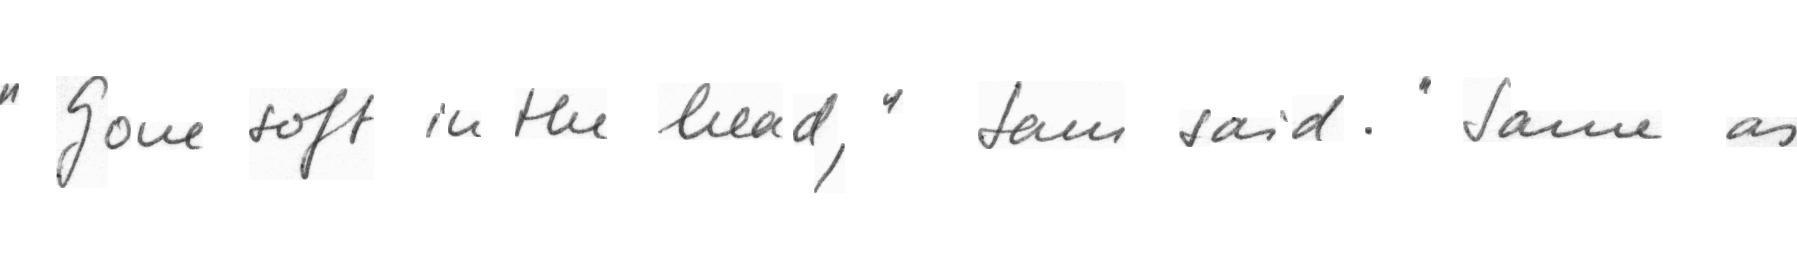 "Gone soft in the head," Sam said. "Same as